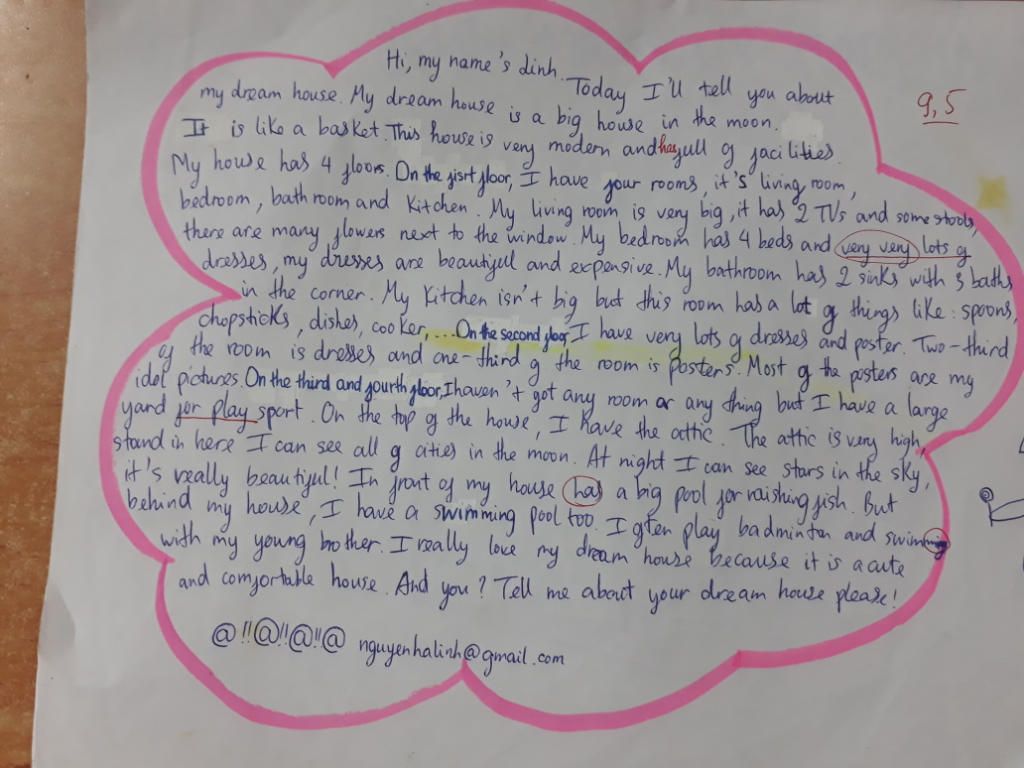 Hi, my name's Linh. Today I'll tell you about
my dream house. My dream house is a big house in the moon.
It is like a basket. This house is very modern and has full of facilities.
My house has 4 floors. On the fisrt floor, I have four rooms, it's living room,
bedroom, bathroom and kitchen. My living room is very big, it has 2 TVs and some stools,
there are many flowers next to the window. My bedroom has 4 beds and very very lots of
dresses, my dresses are beautiful and expensive. My bathroom has 2 sinks with 3 baths
in the corner. My kitchen isn't big but this room has a lot of things like: spoons,
chopsticks, dishes, cooker,... On the second floor, I have very lots of dresses and poster. Two-third
of the room is dresses and one-third of the room is posters. Most of the posters are my
idol pictures. On the third and fourth floor, I haven't got any room or any thing but I have a large
yard for play sport. On the top of the house, I have the attic. The attic is very high,
stand in here I can see all of cities in the moon. At night I can see stars in the sky,
it's really beautiful! In front of my house has a big pool for raishing fish. But
behind my house, I have a swimming pool too. I often play badminton and swimming
with my young brother. I really love my dream house because it is a cute
and comfortable house. And you? Tell me about your dream house please!
@!!@!!@!!@ nguyenhalinh@gmail.com
9,5